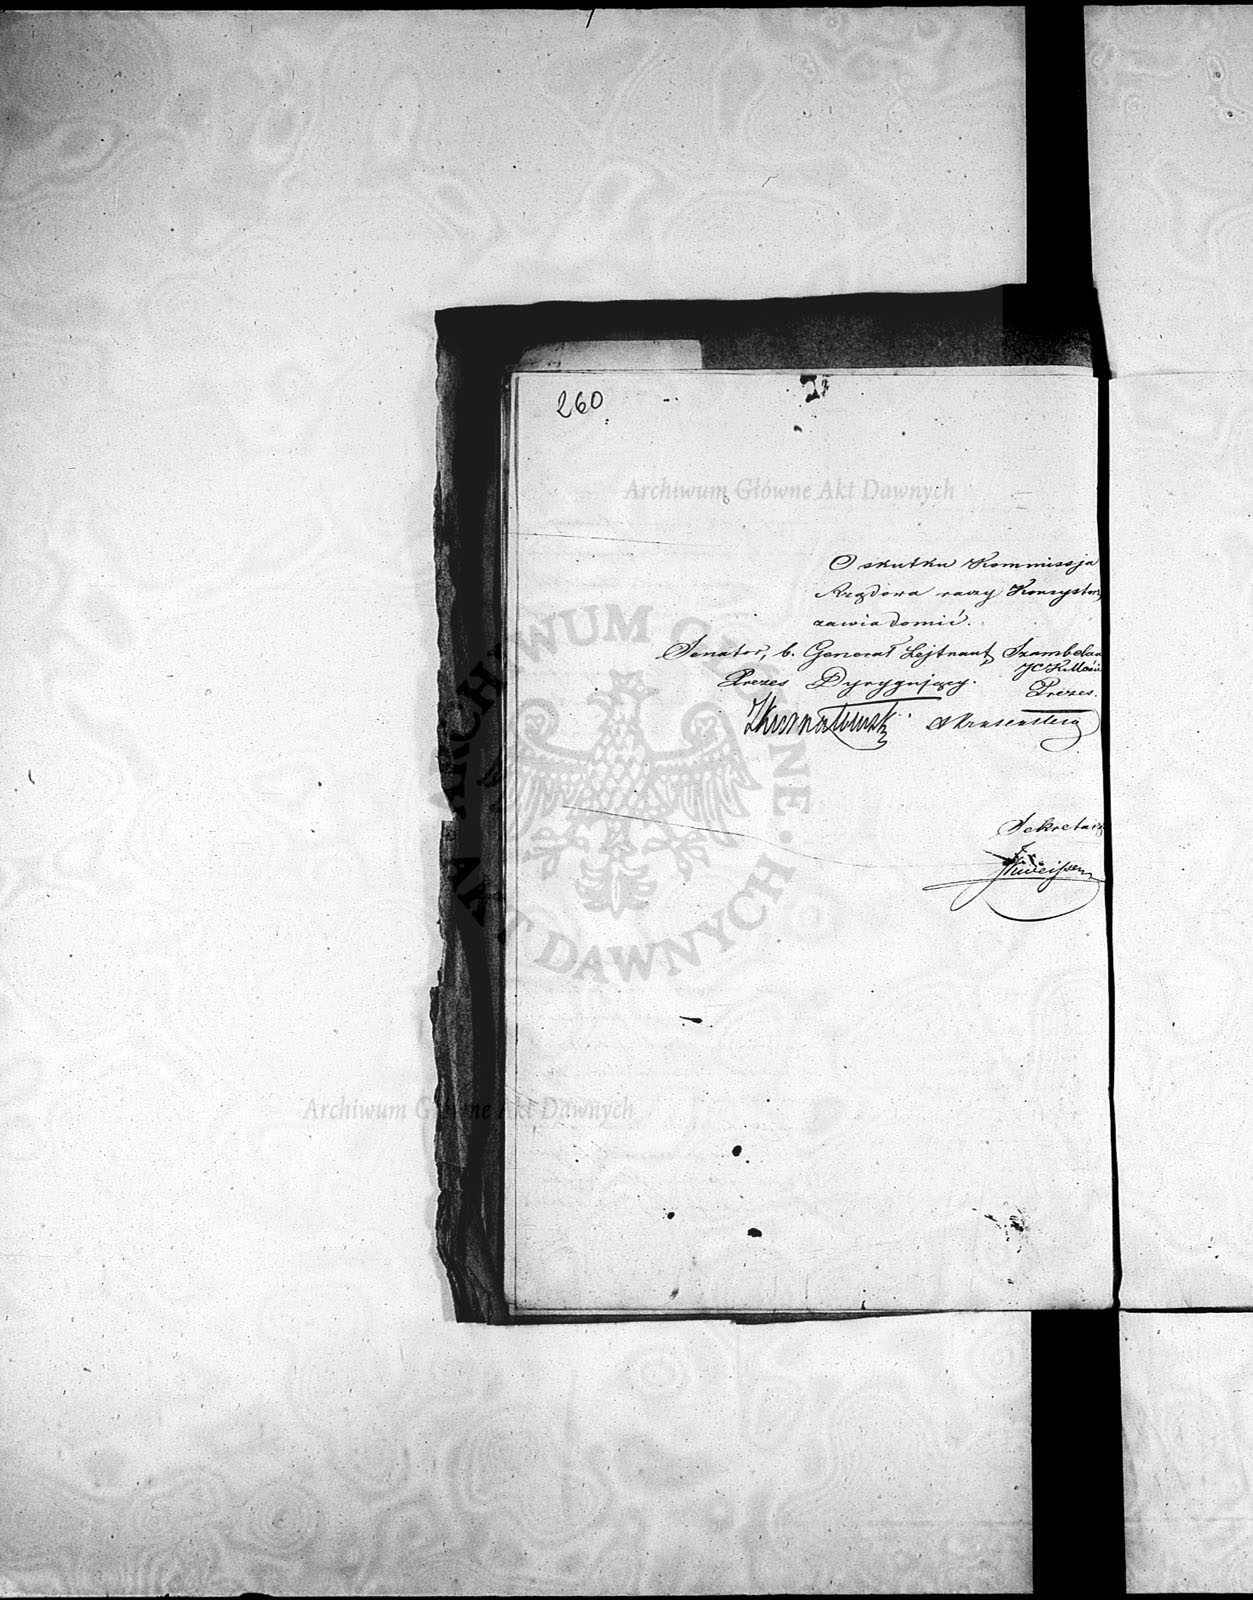 260
Archiwum Główne Akt Dawnych
O skutku Kommissja
Rządowa raczy Konsystorz
zawiadomić.
Senator, b. Generał Lejtnant, Szambelan
JCKMości
Prezes Dyrygujący. Prezes.
ZKurnatowski
Sekretarz
ARCHIWUM GŁÓWNE AKT DAWNYCH
Archiwum Główne Akt Dawnych